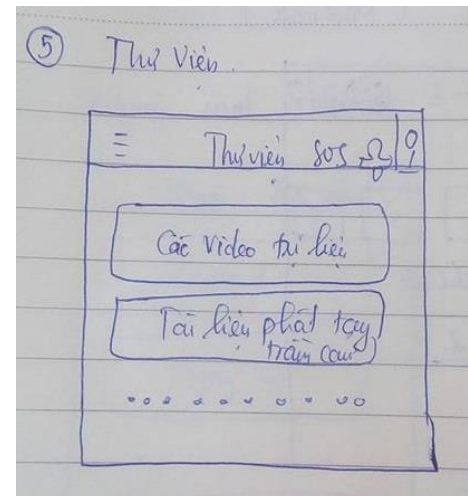 ⑤ Thư Viện.
Thư viện SOS
Các video trị liệu
Tài liệu phát tay
trầm cảm